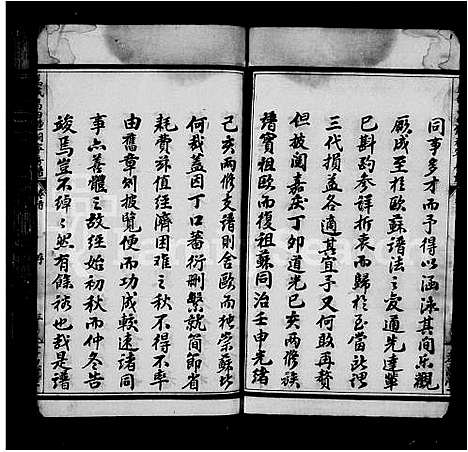 同事多才而予得以涵泳其間樂觀
厥成至於歐蘇譜法之爰適先達輩
已斟酌參詳折衷而歸於至當所謂
三代損益各適其宜予又何敢再贅
但披閱嘉慶丁卯道光己亥兩修族
譜實祖歐而復祖蘇同治壬申光緒
己亥兩修支譜則舍歐而神崇蘇此
何哉蓋因丁口蕃衍刪繁就簡節省
耗費詠值經濟困難之秋不得不率
由舊章刿披覽便而功成較速諸同
事六善體之故经始初秋而仲冬告
竣焉豈不綽之然有條祢也哉是譜